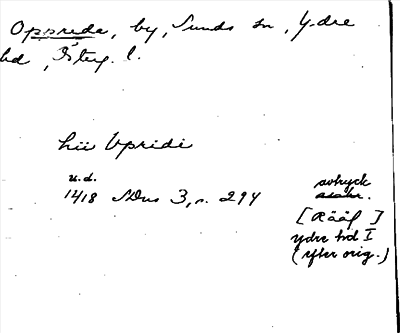 Oppereda, by, Sunds sn, Ydre
hd, Östg. l.
hii Vpridi
u.d.
1418 SDns 3, s. 294
avtryck
[Rääf]
ydre hd I
(efter orig.)